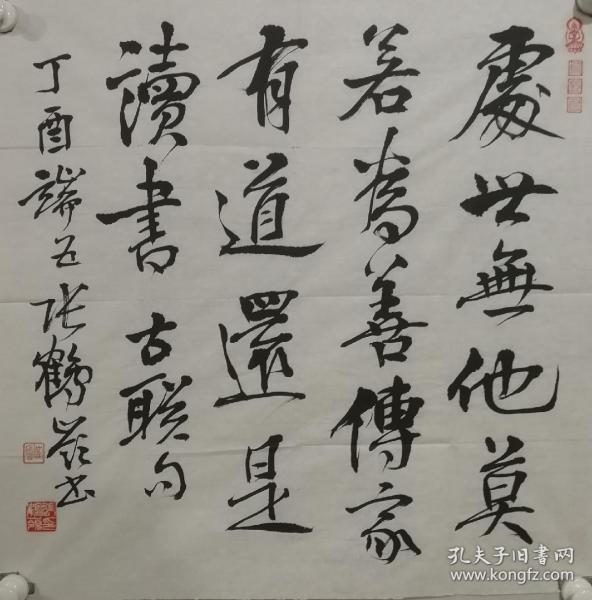 處世無他莫
若為善傳家
有道還是
讀書 古联句
丁酉端五 张鶴岭书
孔夫子旧書网
www.kongfz.com